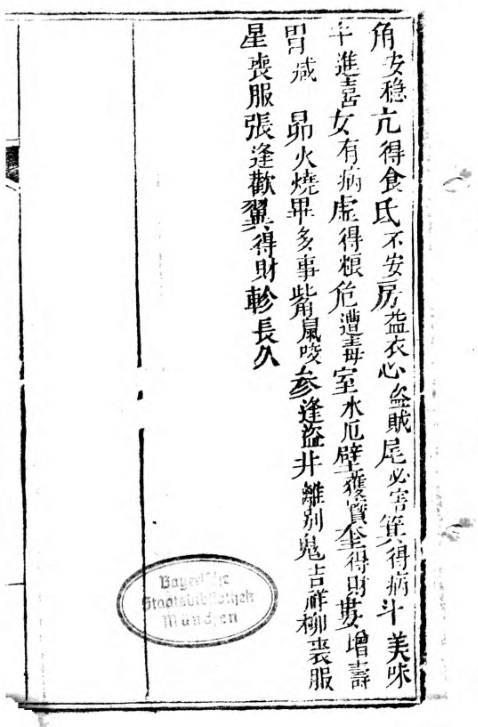 角安穏亢得食氐不安房益衣心盗賊尾必害箕得病斗美味
牛進喜女有病虚得粮危遭毒室水厄壁獲寳奎得財婁增壽
胃減 昴火燒畢多事觜鼠咬參逢盗井離别鬼吉祥柳喪服
星喪服張逢歡翼得財軫長久
Bayerische
Staatsbibliothek
München